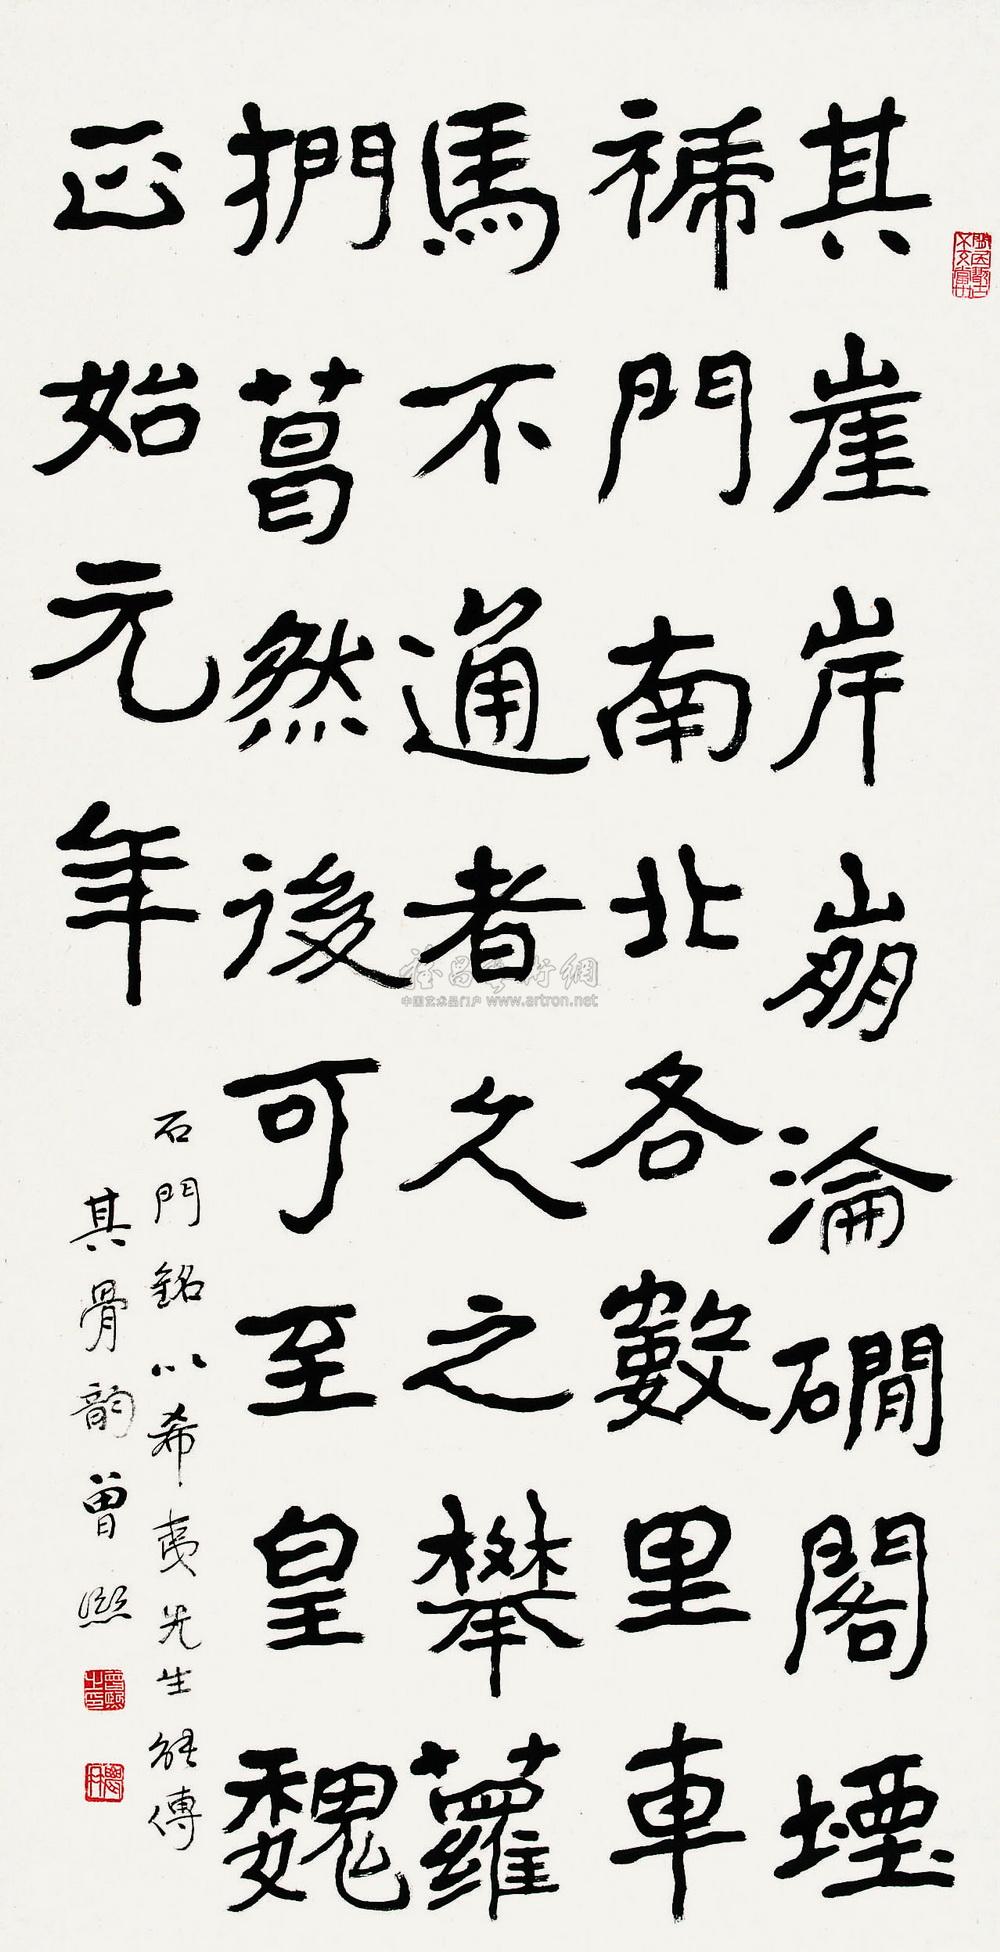 其崖岸崩淪磵閣堙
褫門南北各數里車
馬不通者久之攀蘿
捫葛然後可至皇魏
正始元年
石門銘以希夷先生能傳
其骨韵曾熙
雅昌藝術網
中国艺术品门户 www.artron.net